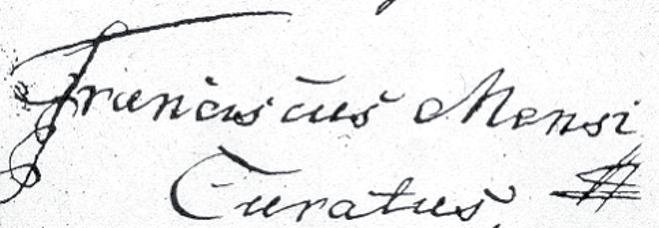 Franciscus Mensi
Curatus